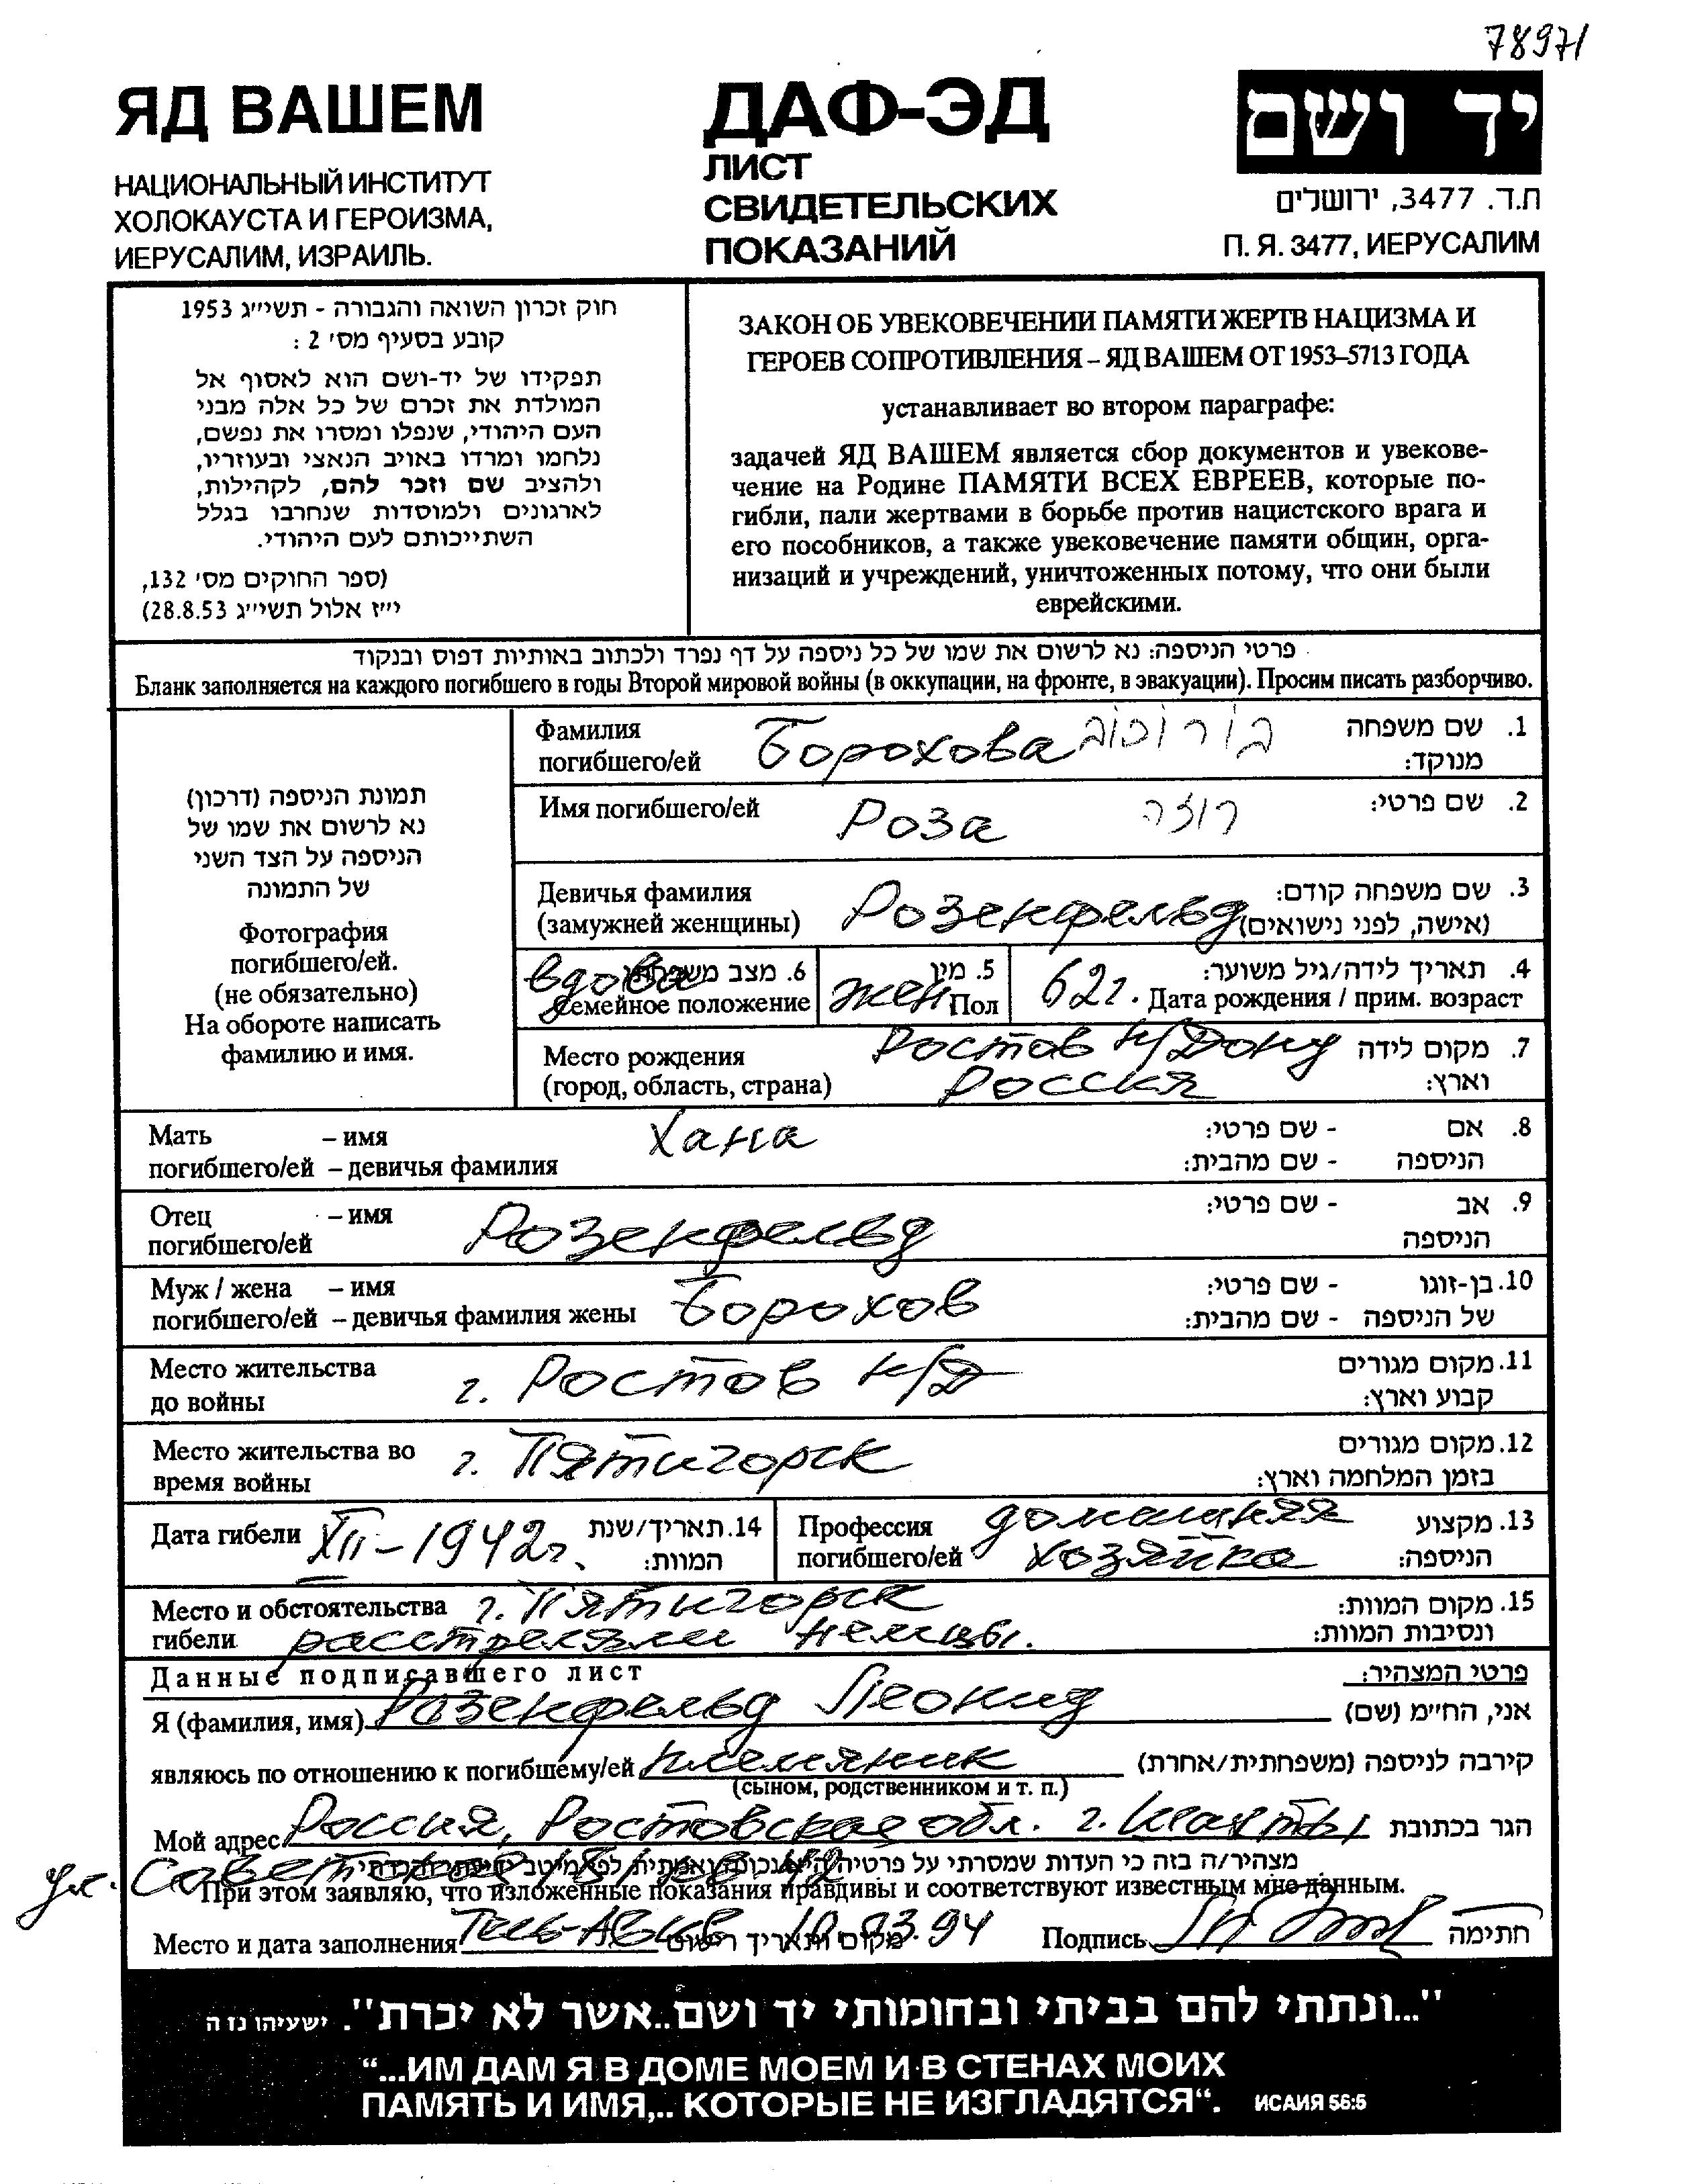 78971
ЯД ВАШЕМ
НАЦИОНАЛЬНЫЙ ИНСТИТУТ
ХОЛОКАУСТА И ГЕРОИЗМА,
ИЕРУСАЛИМ, ИЗРАИЛЬ.
ДАФ-ЭД
ЛИСТ
СВИДЕТЕЛЬСКИХ
ПОКАЗАНИЙ
יד ושם
ת.ד. 3477, ירושלים
П. Я. 3477, ИЕРУСАЛИМ
חוק זכרון השואה והגבורה - תשי״ג 1953
קובע בסעיף מס׳ 2 :
תפקידו של יד-ושם הוא לאסוף אל
המולדת את זכרם של כל אלה מבני
העם היהודי, שנפלו ומסרו את נפשם,
נלחמו ומרדו באויב הנאצי ובעוזריו,
ולהציב שם וזכר להם, לקהילות,
לארגונים ולמוסדות שנחרבו בגלל
השתייכותם לעם היהודי.
(ספר החוקים מס׳ 132,
י״ז אלול תשי״ג 28.8.53)
ЗАКОН ОБ УВЕКОВЕЧЕНИИ ПАМЯТИ ЖЕРТВ НАЦИЗМА И
ГЕРОЕВ СОПРОТИВЛЕНИЯ – ЯД ВАШЕМ ОТ 1953–5713 ГОДА
устанавливает во втором параграфе:
задачей ЯД ВАШЕМ является сбор документов и увекове-
чение на Родине ПАМЯТИ ВСЕХ ЕВРЕЕВ, которые по-
гибли, пали жертвами в борьбе против нацистского врага и
его пособников, а также увековечение памяти общин, орга-
низаций и учреждений, уничтоженных потому, что они были
еврейскими.
פרטי הניספה: נא לרשום את שמו של כל ניספה על דף נפרד ולכתוב באותיות דפוס ובנקוד
Бланк заполняется на каждого погибшего в годы Второй мировой войны (в оккупации, на фронте, в эвакуации). Просим писать разборчиво.
תמונת הניספה (דרכון)
נא לרשום את שמו של
הניספה על הצד השני
של התמונה
Фотография
погибшего/ей.
(не обязательно)
На обороте написать
фамилию и имя.
Фамилия
погибшего/ей Борохова בורוכוב
1. שם משפחה
מנוקד:
Имя погибшего/ей Роза רוזה 2. שם פרטי:
Девичья фамилия
(замужней женщины) Розенфельд
3. שם משפחה קודם:
(אישה, לפני נישואים)
вдова 6. מצב משפחתי
Семейное положение
жен 5. מין
Пол
62 г. 4. תאריך לידה/גיל משוער:
Дата рождения / прим. возраст
Место рождения
(город, область, страна)
Ростов н/Дону
Россия
7. מקום לידה
וארץ:
Мать – имя Хана
погибшего/ей – девичья фамилия
8. אם - שם פרטי:
הניספה - שם מהבית:
Отец – имя
погибшего/ей Розенфельд
9. אב - שם פרטי:
הניספה
Муж / жена – имя
погибшего/ей – девичья фамилия жены Борохов
10. בן-זוגו - שם פרטי:
של הניספה - שם מהבית:
Место жительства
до войны г. Ростов н/Д
11. מקום מגורים
קבוע וארץ:
Место жительства во
время войны г. Пятигорск
12. מקום מגורים
בזמן המלחמה וארץ:
Дата гибели XII – 1942 г.
14. תאריך/שנת
המוות:
Профессия
погибшего/ей
домашняя
хозяйка
13. מקצוע
הניספה:
Место и обстоятельства г. Пятигорск
гибели расстреляли немцы.
15. מקום המוות:
ונסיבות המוות:
Данные подписавшего лист
פרטי המצהיר:
Я (фамилия, имя) Розенфельд Леонид אני, הח״מ (שם)
являюсь по отношению к погибшему/ей племянник קירבה לניספה (משפחתית/אחרת)
(сыном, родственником и т. п.)
Мой адрес Россия, Ростовская обл. г. Шахты הגר בכתובת
ул. Советская
מצהיר/ה בזה כי העדות שמסרתי על פרטיה היא נכונה ואמתית לפי מיטב ידיעתי והכרתי
При этом заявляю, что изложенные показания правдивы и соответствуют известным мне данным.
Место и дата заполнения Тель-Авив 10.03.94 מקום ותאריך רישום
Подпись חתימה
"...ונתתי להם בביתי ובחומותי יד ושם..אשר לא יכרת". ישעיהו נז ה
“...ИМ ДАМ Я В ДОМЕ МОЕМ И В СТЕНАХ МОИХ
ПАМЯТЬ И ИМЯ,.. КОТОРЫЕ НЕ ИЗГЛАДЯТСЯ“. ИСАИЯ 56:5